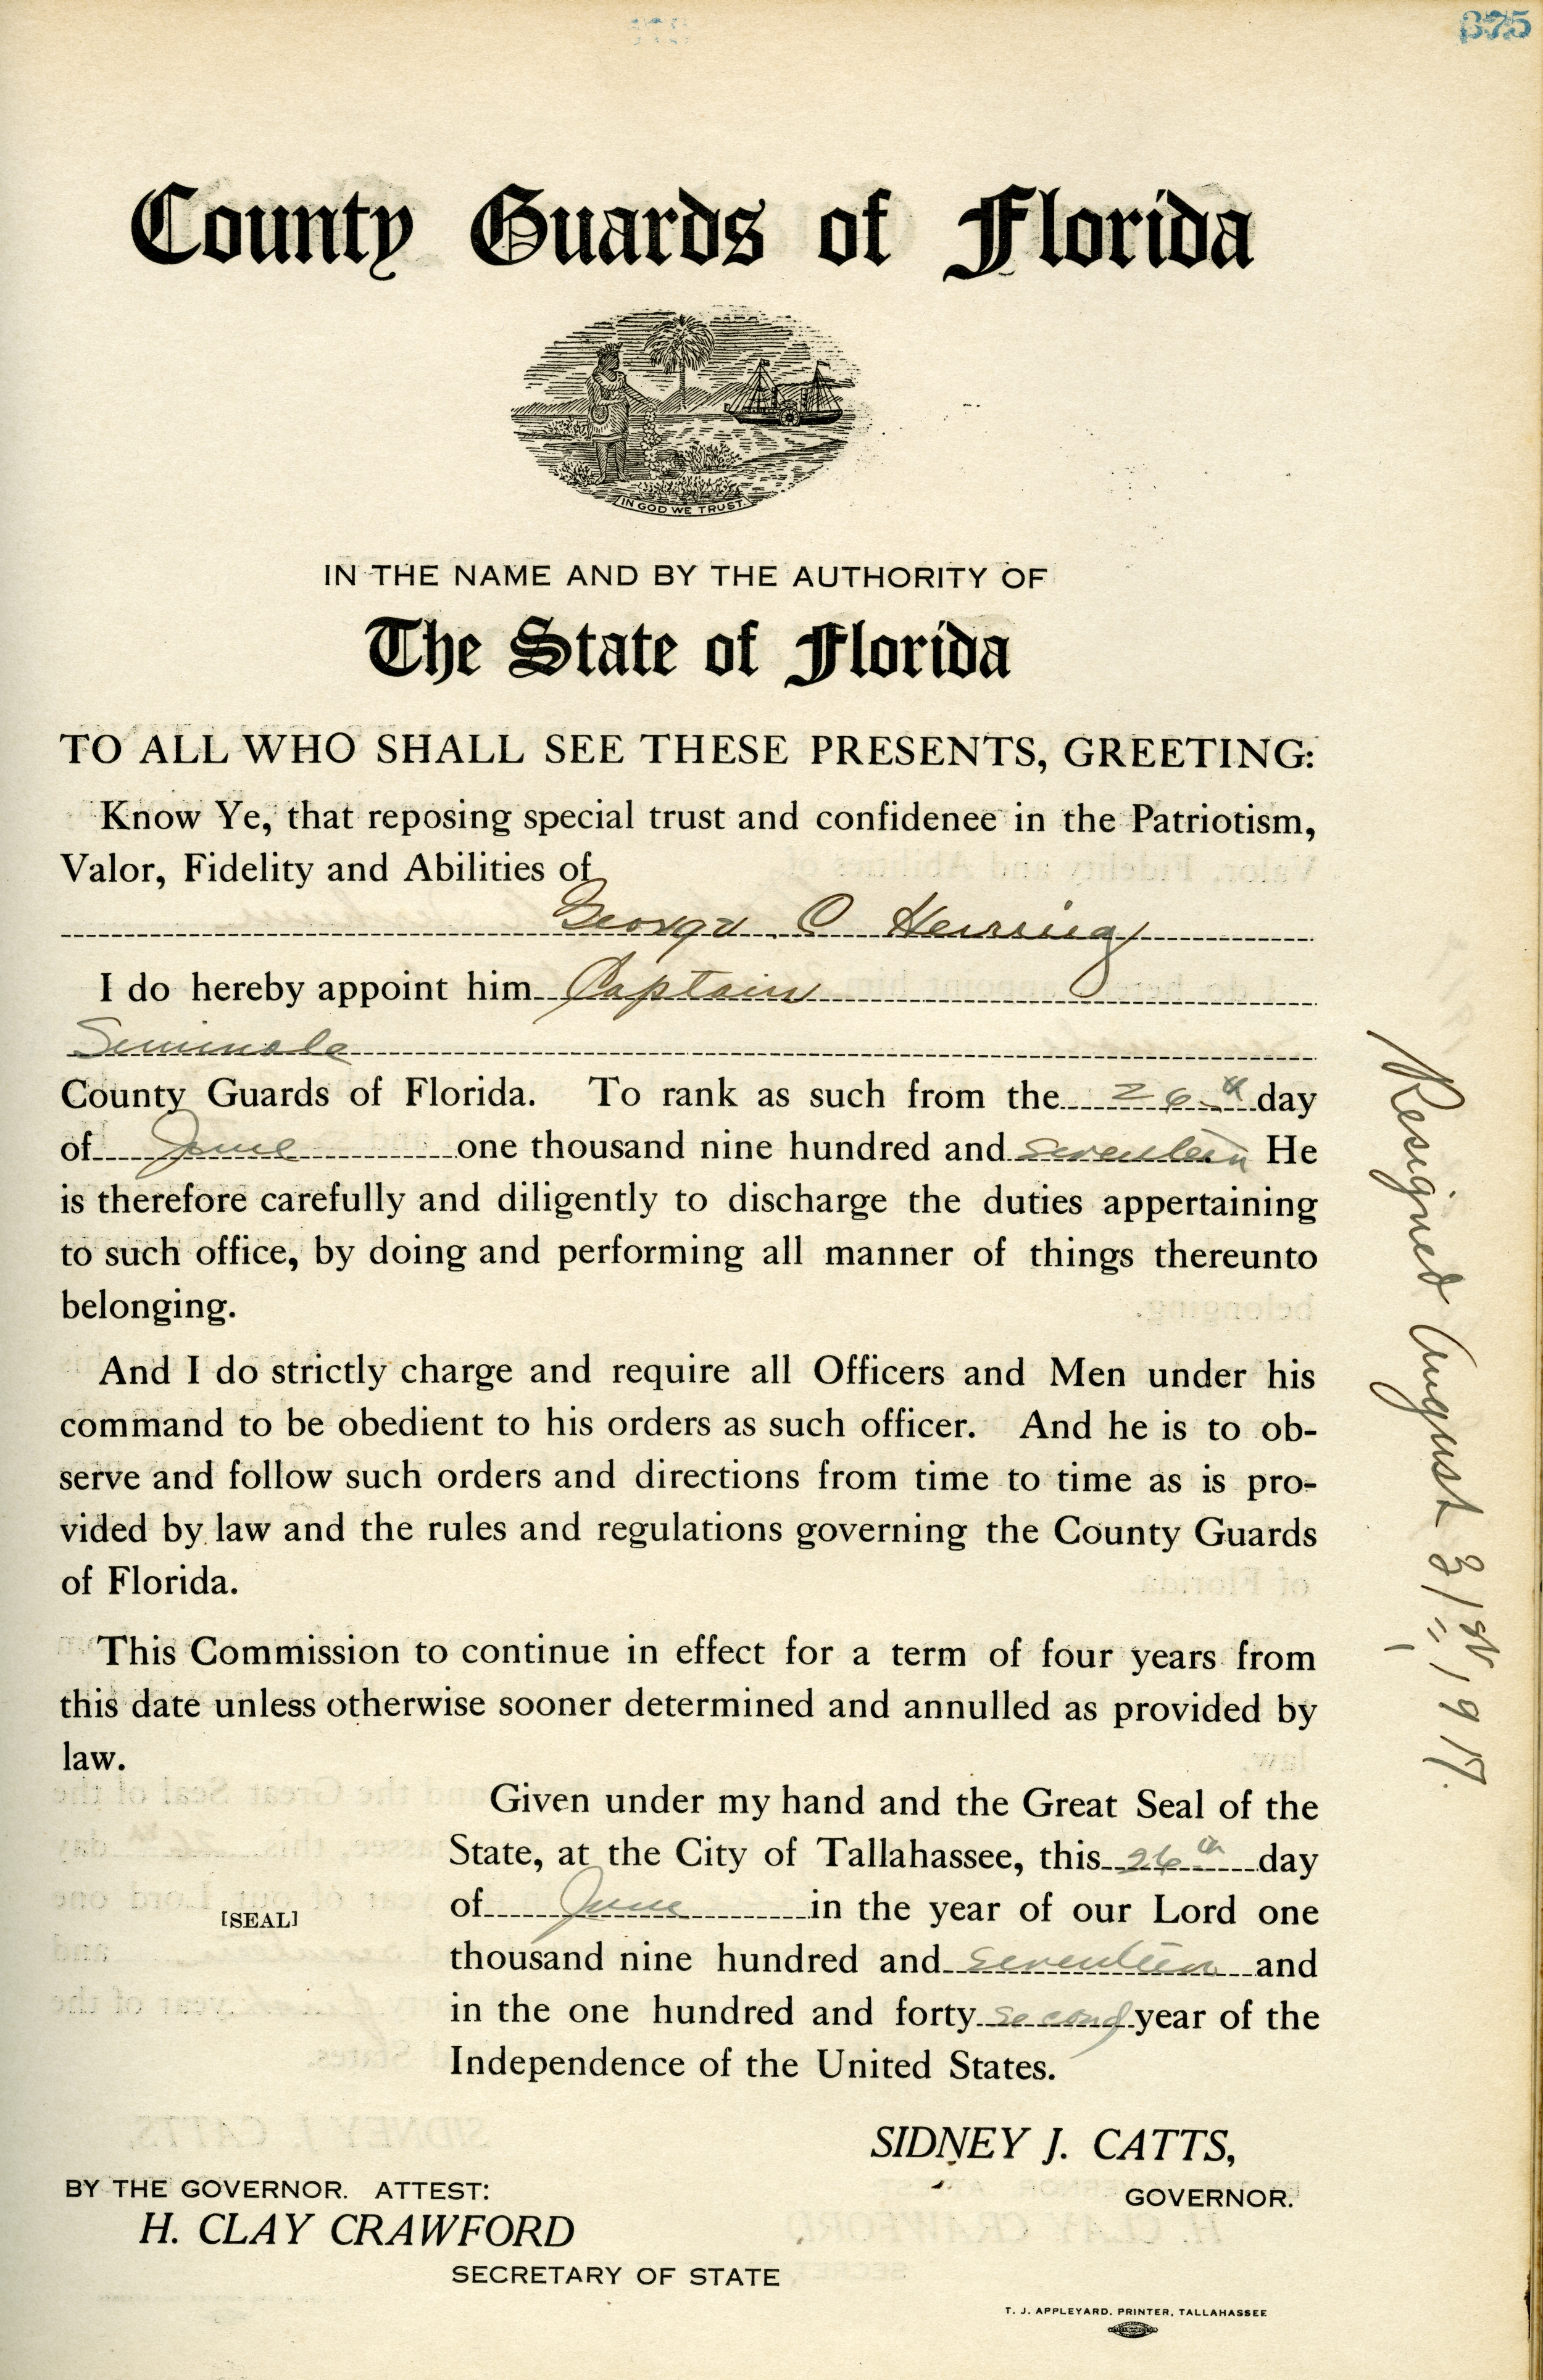 375
County Guards of Florida
IN GOD WE TRUST.
IN THE NAME AND BY THE AUTHORITY OF
The State of Florida
TO ALL WHO SHALL SEE THESE PRESENTS, GREETING:
Know Ye, that reposing special trust and confidenee in the Patriotism,
Valor, Fidelity and Abilities of
George C Herring
I do hereby appoint him Captain
Seminole
County Guards of Florida. To rank as such from the 26th day
of June one thousand nine hundred and seventeen He
is therefore carefully and diligently to discharge the duties appertaining
to such office, by doing and performing all manner of things thereunto
belonging.
And I do strictly charge and require all Officers and Men under his
command to be obedient to his orders as such officer. And he is to ob-
serve and follow such orders and directions from time to time as is pro-
vided by law and the rules and regulations governing the County Guards
of Florida.
This Commission to continue in effect for a term of four years from
this date unless otherwise sooner determined and annulled as provided by
law.
Given under my hand and the Great Seal of the
State, at the City of Tallahassee, this 26th day
of June in the year of our Lord one
[SEAL]
thousand nine hundred and seventeen and
in the one hundred and forty second year of the
Independence of the United States.
SIDNEY J. CATTS,
GOVERNOR.
BY THE GOVERNOR. ATTEST:
H. CLAY CRAWFORD
SECRETARY OF STATE
T. J. APPLEYARD, PRINTER, TALLAHASSEE
Resigned August 31st, 1917.